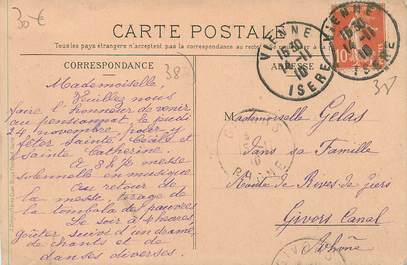 30€
CARTE POSTALE
Tous les pays étrangers n'acceptent pas la correspondance au
CORRESPONDANCE
ADRESSE
38
VIENNE
15 30
14-11
10
ISERE
VIENNE
15 30
14-11
10
ISERE
10
Mademoiselle,
Veuillez nous
faire l'honneur de venir
au pensionnat, le jeudi
24 novembre, pour y
fêter Sainte Cécile et
Sainte Catherine.
A 8h ½ messe
solennelle en musique
Au retour de
la messe, tirage de
la tombola des pauvres
Le soir à 4 heures,
goûter, suivi d'un drame
de chants et de
danses diverses.
Mademoiselle Gelas
dans sa Famille
Route de Rives de Giers
Givors Canal
Rhône
RHONE